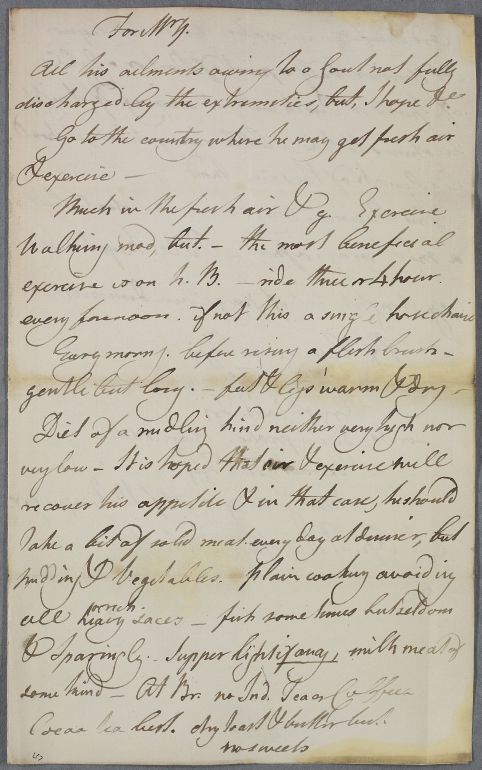 For Mr G.
All his ailments owing to a Gout not fully
discharged by the extremities, but, I hope &c
Go to the country where he may get fresh air
& exercise —
Much in the fresh air & g. Exercise
Walking mod, but. — the most beneficial
exercise is on h. B. — ride three or 4 hour.
every forenoon. if not this a single horse chaise
Every morng. before rising a flesh brush —
gentle but long. — feet & legs warm & dry —
Diet of a midling kind neither very high nor
very low — It is hoped that air & exercise will
recover his appetite & in that case, he should
take a bit of solid meat every day at dinner, but
pudding & Vegetables. plain cooking avoiding
all heavy or rich saces — fish sometimes but seldom
& sparingly. Supper light if any, milk meat of
some kind — At Br. no Ind. Tea or Coffee
Cocoa tea best. dry toast & butter but.
no sweets